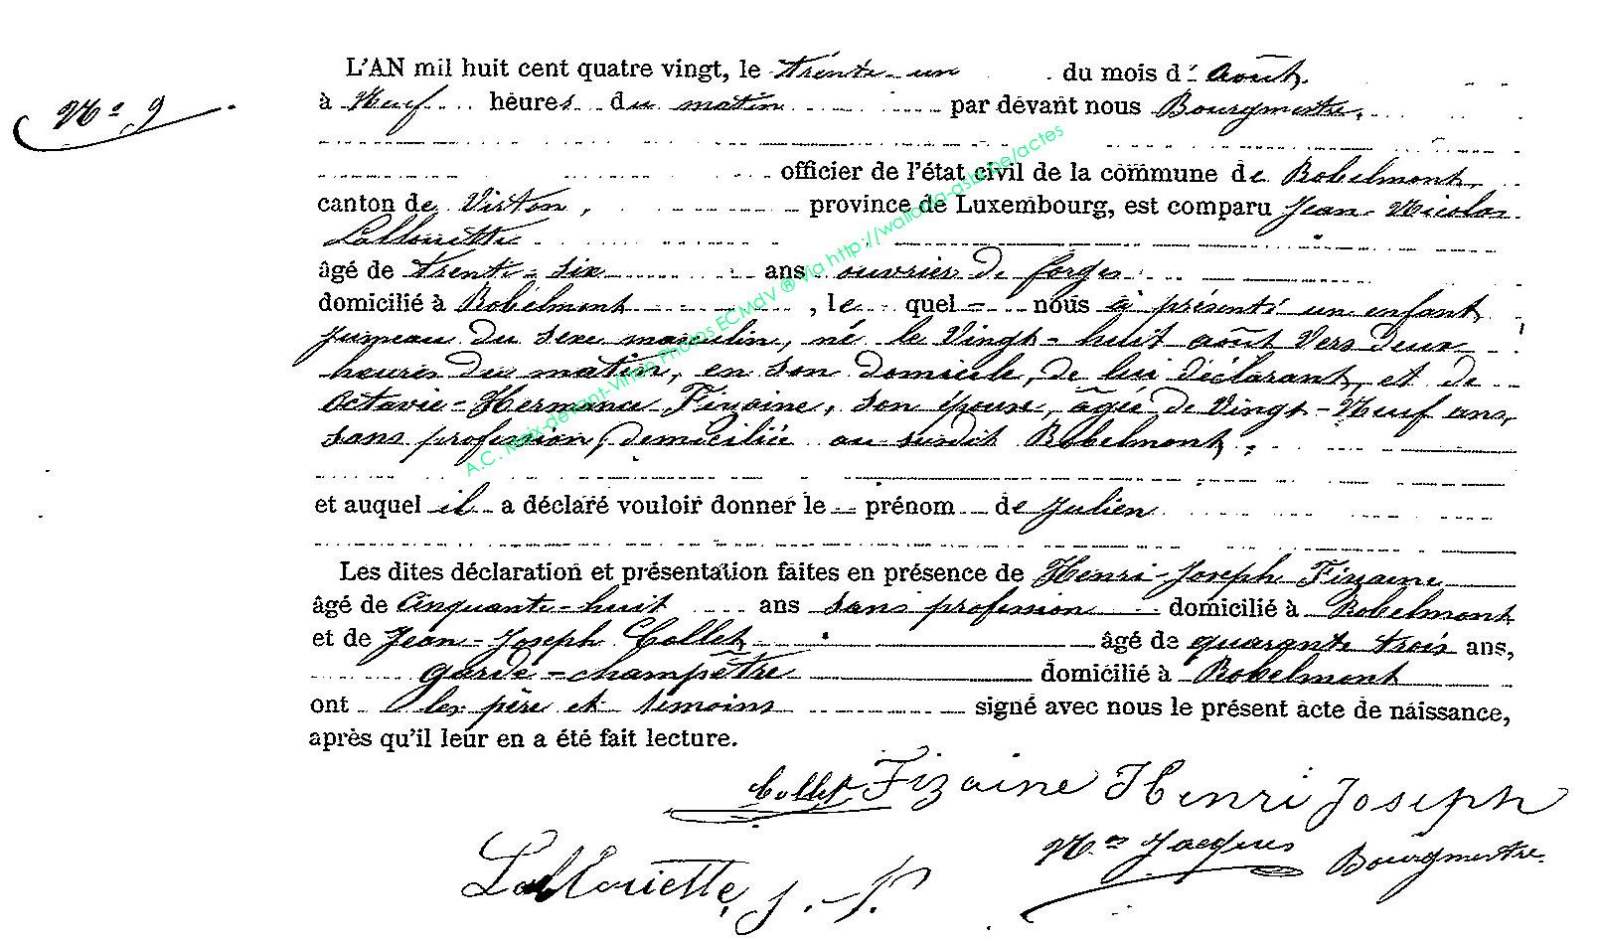 N° 9
L'AN mil huit cent quatre vingt, le trente-un du mois d' août,
à Neuf heures du matin par dévant nous Bourgmestre,
officier de l'état civil de la commune de Robelmont,
canton de Virton, province de Luxembourg, est comparu Jean-Nicolas
Lallouette
âgé de trente-six ans ouvrier de forges
domicilié à Robelmont, le quel nous a présenté un enfant
jumeau du sexe masculin, né le Vingt-huit août Vers deux
heures du matin, en son domicile, de lui déclarant, et de
Octavie-Hermance Fizaine, son épouse, âgée de Vingt-Neuf ans,
sans profession, domiciliée au susdit Robelmont,
et auquel il a déclaré vouloir donner le prénom de Julien
Les dites déclaration et présentation faites en présence de Henri-Joseph Fizaine
âgé de Cinquante-huit ans sans profession domicilié à Robelmont
et de Jean-Joseph Collet, âgé de quarante trois ans,
garde-champêtre domicilié à Robelmont
ont les père et témoins signé avec nous le présent acte de naissance,
après qu'il leur en a été fait lecture.
Collet Fizaine Henri Joseph
Lallouette, J. N. Jacques Bourgmestre.
A.C. Meix-devant-Virton Photos ECMdV ® Via http://wallonia-asbl.be/actes